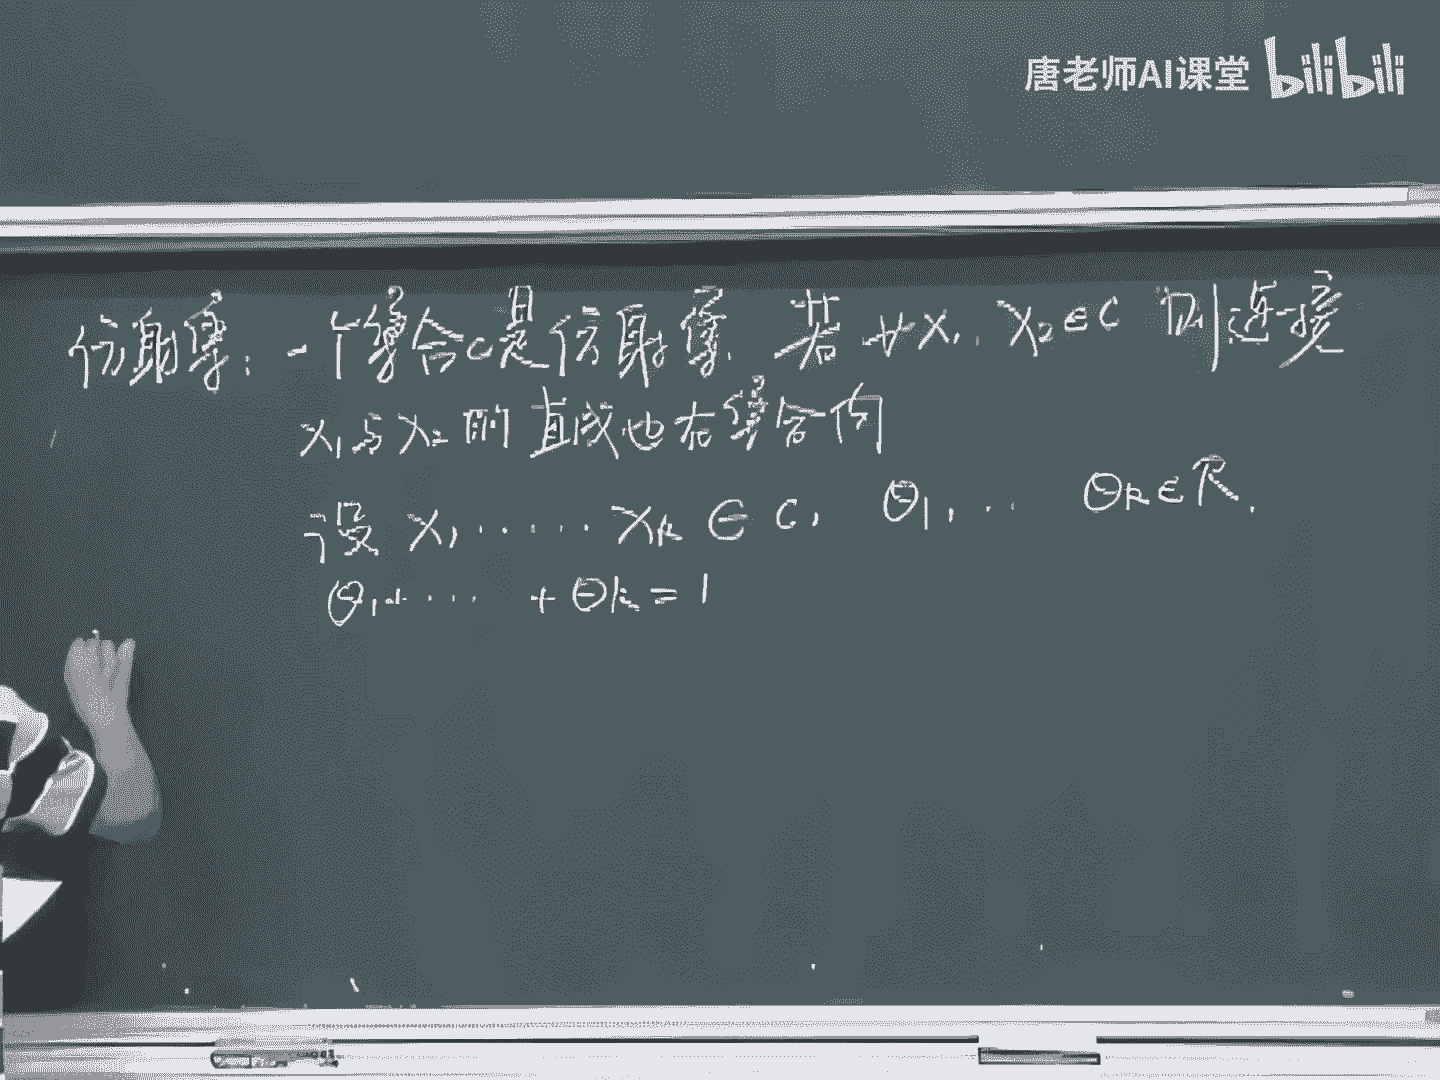 唐老师AI课堂 bilibili
仿射集：一个集合C是仿射集，若∀x₁，x₂∈C 则连接
x₁与x₂的直线也在集合内
设 x₁……xₖ∈C，θ₁，… θₖ∈R.
θ₁+…+θₖ=1